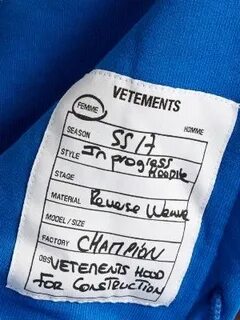 VETEMENTS
FEMME HOMME
SEASON SS17
STYLE In progress
Hoodie
STAGE
MATERIAL Reverse Weave
MODEL/SIZE
FACTORY CHAMPION
OBS VETEMENTS HOOD
FOR CONSTRUCTION